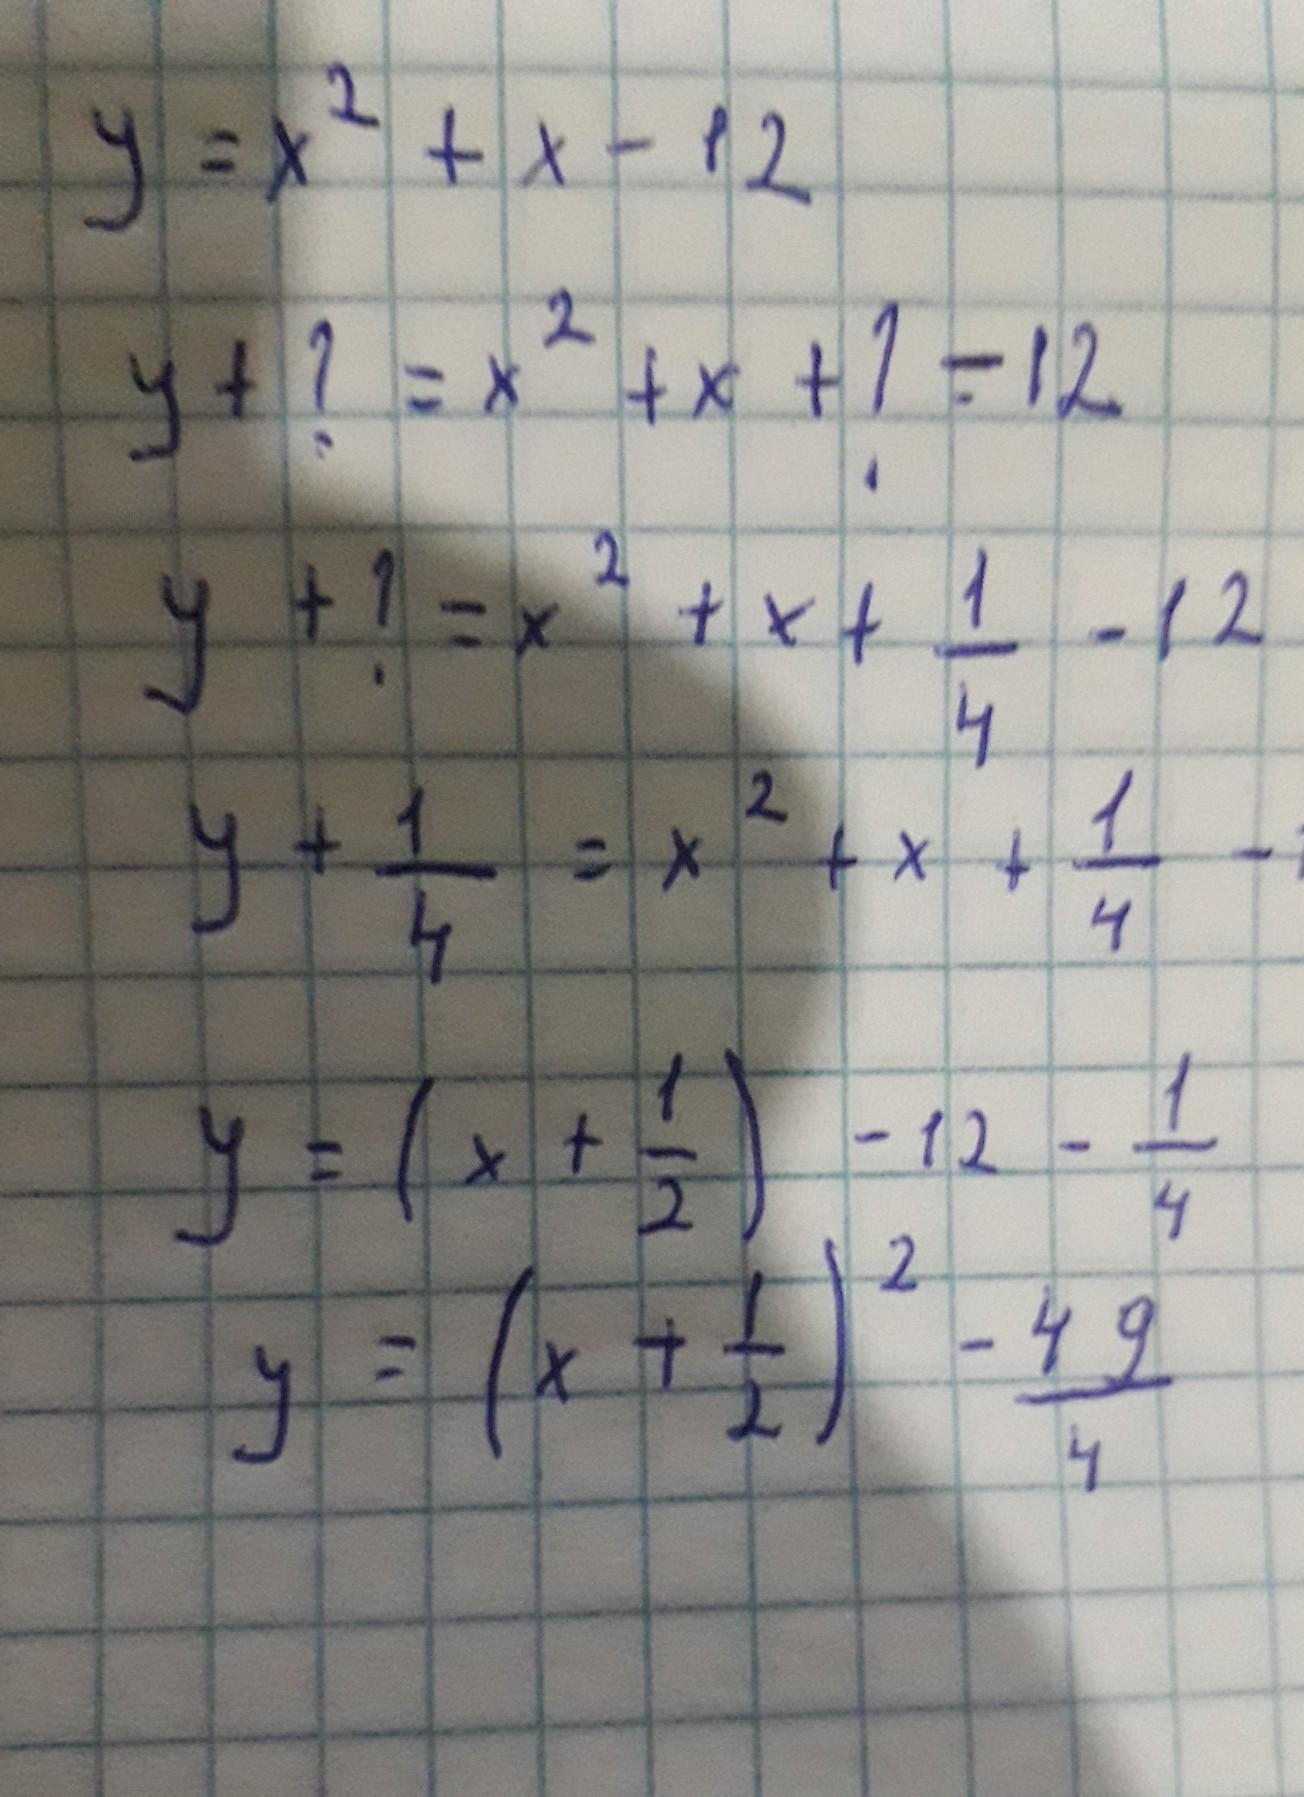 y = x² + x - 12
y + ? = x² + x + ? - 12
y + ? = x² + x + 1/4 - 12
y + 1/4 = x² + x + 1/4 -
y = (x + 1/2) - 12 - 1/4
y = (x + 1/2)² - 49/4